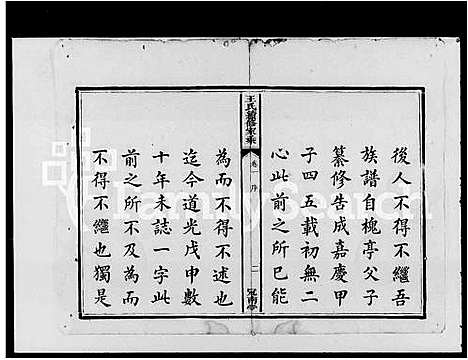 後人不得不繼吾
族譜自槐亭父子
纂修告成嘉慶甲
子四五載初無二
心此前之所已能
王氏續修家乘
卷一 序
二
為而不得不述也
迄今道光戊申數
十年未誌一字此
前之所不及為而
不得不繼也獨是
FamilySearch